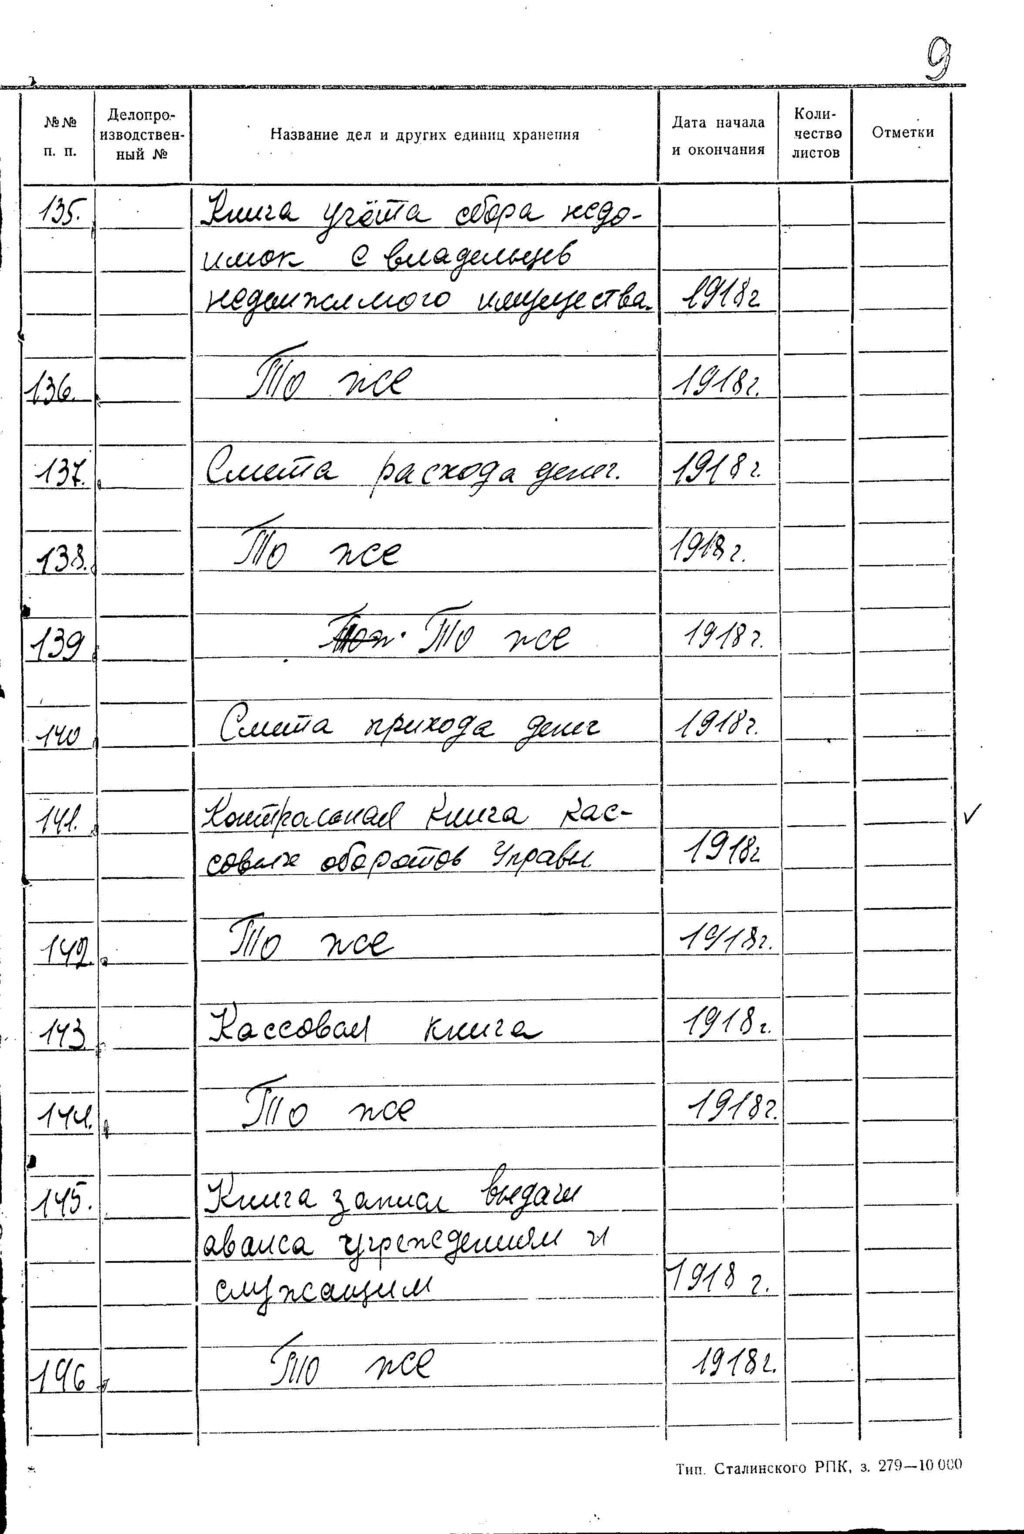 9
№№ п. п. Делопро-изводствен-ный № Название дел и других единиц хранения Дата начала и окончания Коли-чество листов Отметки
135. Книга учёта сбора недо-
имок с владельцев
недвижимого имущества. 1918г
136. То же 1918г.
137. Смета расхода денег. 1918г.
138. То же 1918г.
139 То же 1918г.
140 Смета прихода денег 1918г.
141. Контрольная книга кас-
совых оборотов Управы 1918г
142. То же 1918г.
143 Кассовая книга 1918г.
144. То же 1918г.
145. Книга записи выдачи
аванса учреждениям и
служащим 1918 г.
146 То же 1918г.
Тип. Сталинского РПК, з. 279—10 000